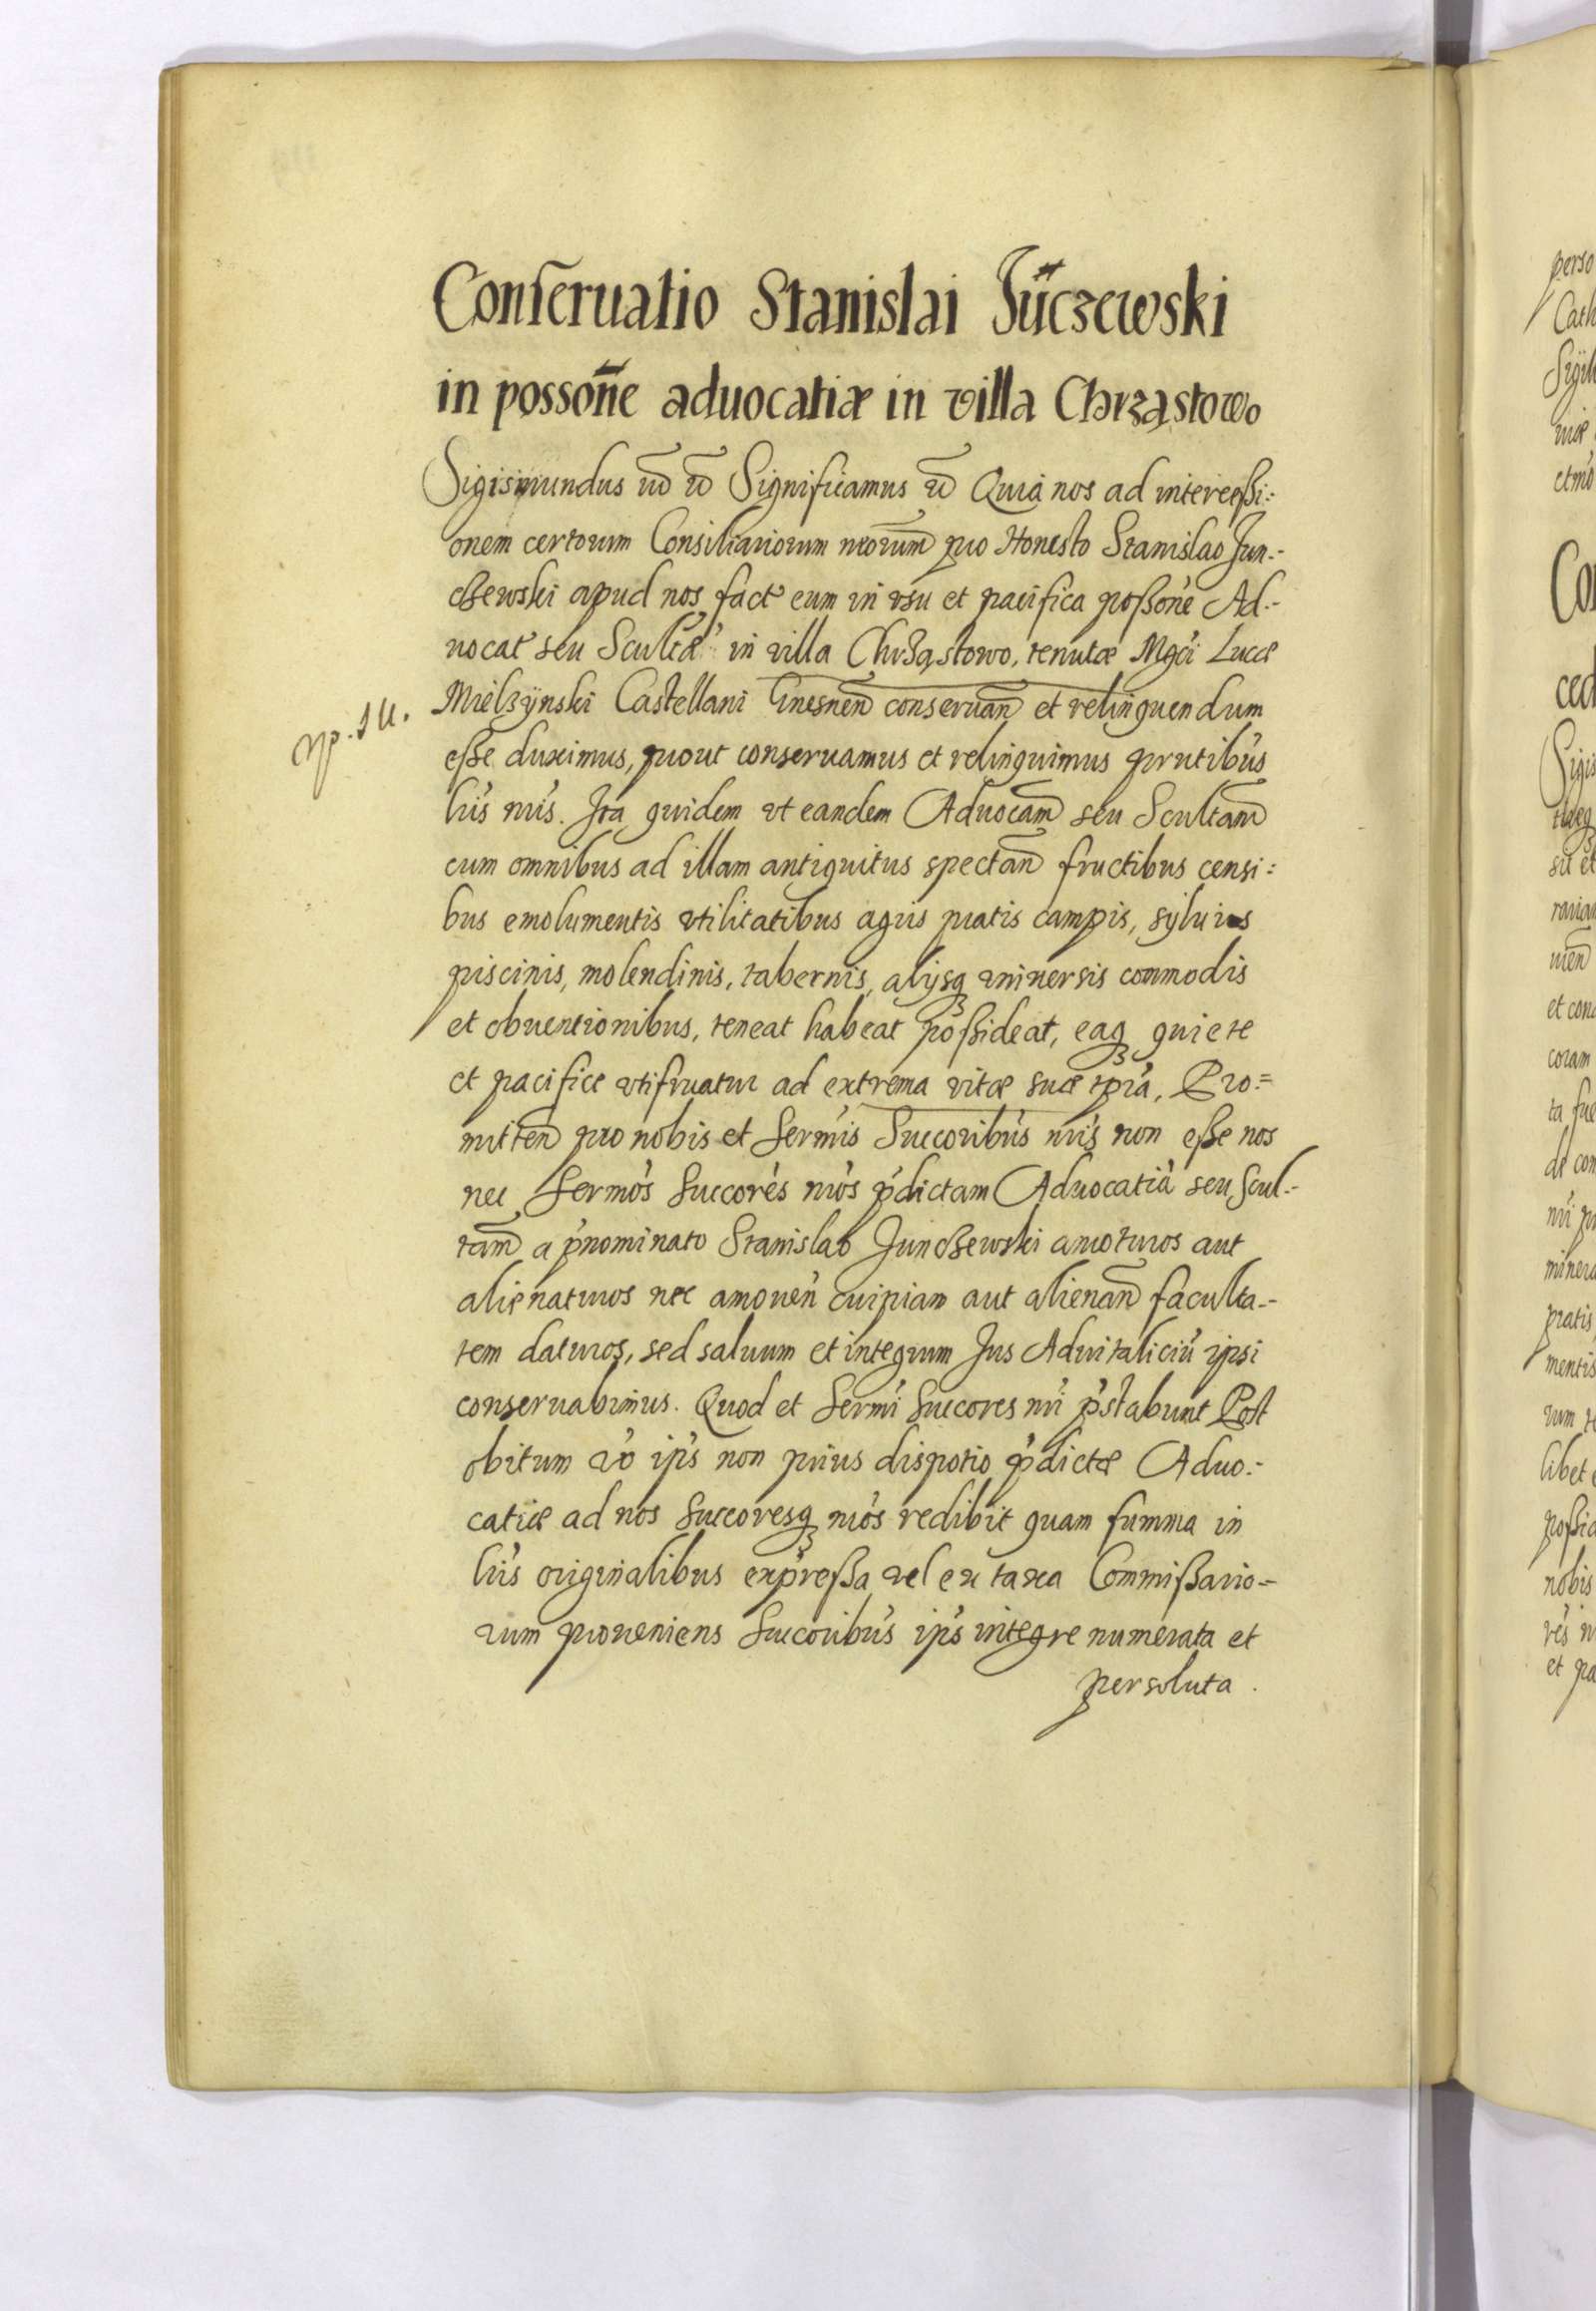 Conseruatio Stanislai Jūczewski
in possoñe aduocatiæ in villa Chrząstowo
Sigismundus Significamus Quia nos ad intercessi:
onem certorum Consiliariorum nrorum pro Honesto Stanislao Jun-
czewski apud nos fact eum in vsu et pacifica possone Ad-
uocat seu Scultæ in villa Chrząstowo, tenutæ Mgci Lucæ
Mielżÿnski Castellani Gnesnen conseruan et relinquendum
esse duximus, prout conseruamus et relinquimus prntibus
lris nris. Ita quidem vt eandem Aduocam seu Scultam
cum omnibus ad illam antiquitus spectan fructibus censi:
bus emolumentis vtilitatibus agris pratis campis, syluis
piscinis, molendinis, tabernis, alijsq vniuersis commodis
et obuentionibus, teneat habeat possideat, eaq quiete
et pacifice vtifruatur ad extrema vitæ suæ tpra, Pro=
mitten pro nobis et Sermis Succoribus nris non esse nos
nec Sermos Succores nros pdictam Aduocatia seu Scul-
tam a pnominato Stanislao Junczewski amoturos aut
alienaturos nec amouen cuipiam aut alienan faculta-
tem daturos, sed saluum et integrum Jus Aduitaliciu ipsi
conseruabimus. Quod et Sermi Succores nri pstabunt Post
obitum vo ips non prius dispotio pdictæ Aduo-
catiæ ad nos Succoresq nros redibit quam summa in
lris originalibus expressa vel ex taxa Commissario=
rum proueniens Succoribus ips integre numerata et
persoluta.